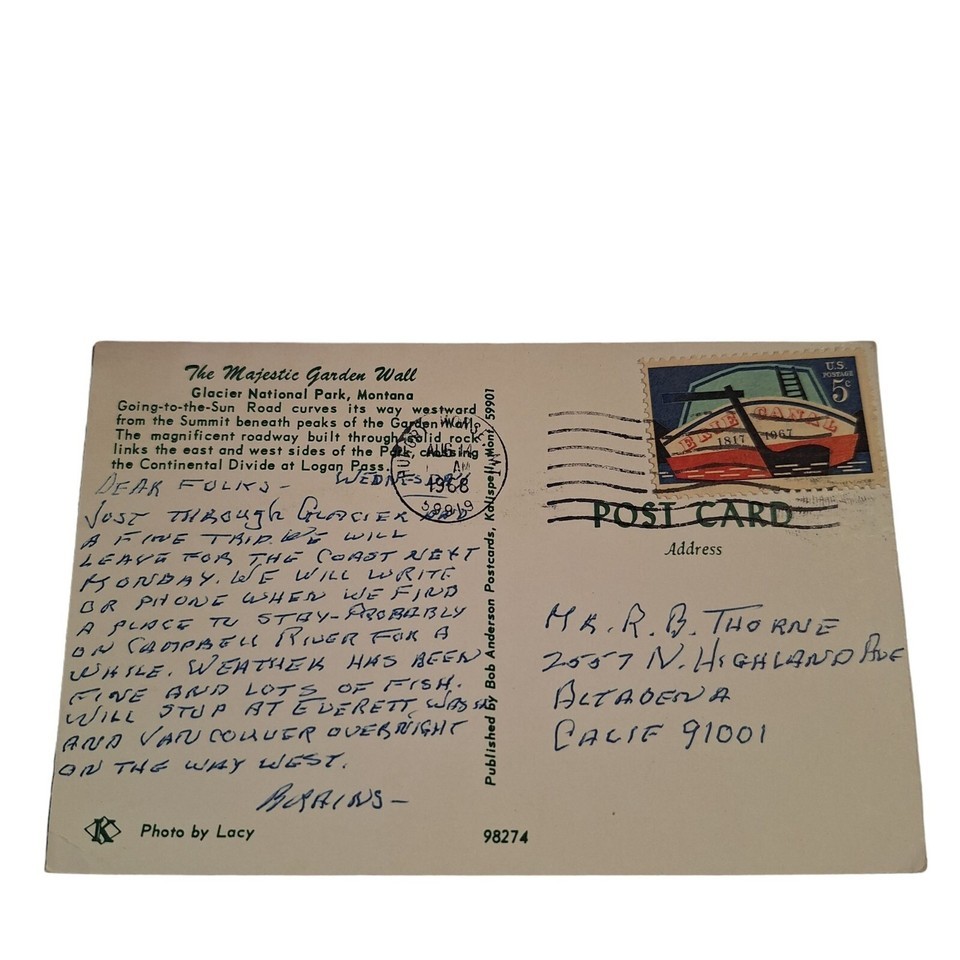 The Majestic Garden Wall
Glacier National Park, Montana
Going-to-the-Sun Road curves its way westward
from the Summit beneath peaks of the Garden Wall.
The magnificent roadway built through solid rock
links the east and west sides of the Park, crossing
the Continental Divide at Logan Pass.
DEAR FOLKS - WEDNESDAY
JUST THROUGH GLACIER HAD
A FINE TRIP. WE WILL
LEAVE FOR THE COAST NEXT
MONDAY. WE WILL WRITE
OR PHONE WHEN WE FIND
A PLACE TO STAY - PROBABLY
ON CAMPBELL RIVER FOR A
WHILE. WEATHER HAS BEEN
FINE AND LOTS OF FISH.
WILL STOP AT EVERETT, WASH
AND VANCOUVER OVERNIGHT
ON THE WAY WEST.
K
Photo by Lacy
AUG 14
AM
1968
59919
Published by Bob Anderson Postcards, Kalispell, Mont. 59901
98274
U.S.
POSTAGE
5c
ERIE CANAL
1817 1967
POST CARD
Address
MR. R. B. THORNE
2557 N. HIGHLAND AVE
ALTADENA
CALIF 91001